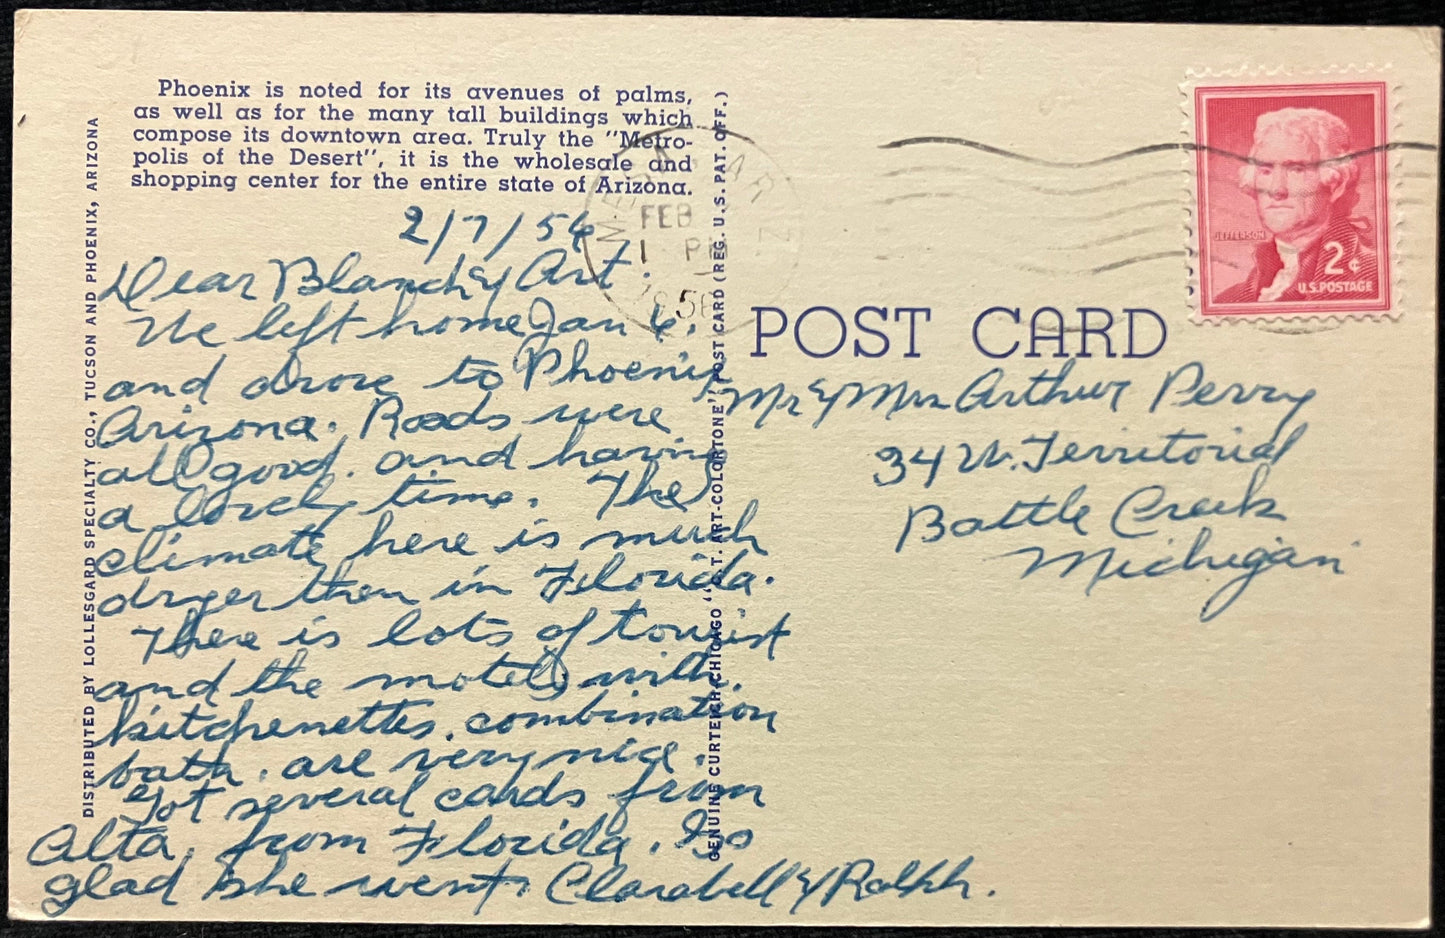 Phoenix is noted for its avenues of palms,
as well as for the many tall buildings which
compose its downtown area. Truly the "Metro-
polis of the Desert", it is the wholesale and
shopping center for the entire state of Arizona.
DISTRIBUTED BY LOLLESGARD SPECIALTY CO., TUCSON AND PHOENIX, ARIZONA
2/7/56
Dear Blanch & Art.
We left home Jan 6.
and drove to Phoenix
Arizona. Roads were
all good. and having
a lovely time. The
climate here is much
dryer then in Florida.
There is lots of tourist
and the motels with
kitchenettes. combination
bath. are very nice.
Got several cards from
Alta, from Florida. Is
glad she went. Clarabell & Ralph.
GENUINE CURTEICH-CHICAGO "C. T. ART-COLORTONE" POST CARD (REG. U. S. PAT. OFF.)
FEB
1 PM
1956
JEFFERSON
2¢
U.S. POSTAGE
POST CARD
Mr & Mrs Arthur Perry
34 W. Territorial
Battle Creek
Michigan